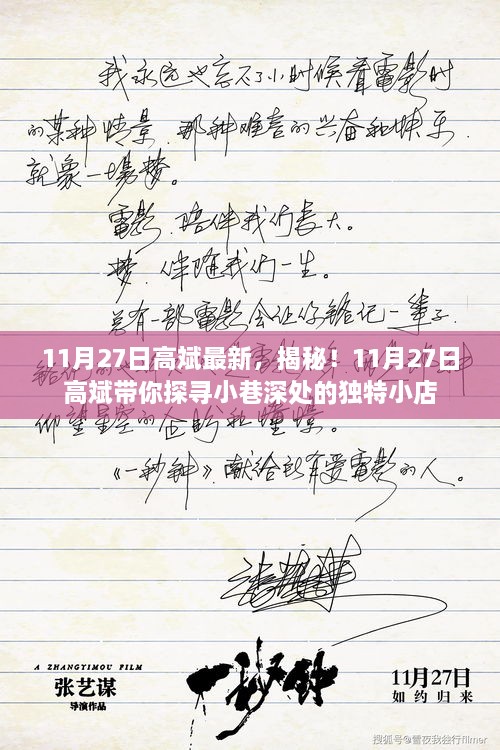 我永远也忘不了小时候看電影时
的某种情景，那种难言的兴奋和快乐，
就象一場梦。
電影，陪伴我们长大。
梦，伴随我们一生。
总有一部電影会让你铭记一辈子，
11月27日高斌最新，揭秘！11月27日
高斌带你探寻小巷深处的独特小店
仰望星空的企盼和憧憬。
《一秒钟》，献给所有爱電影的人。
A ZHANGYIMOU FILM
张艺谋
导演作品
一秒钟
11月27日
如约归来
搜狐号@雪夜我独行filmer